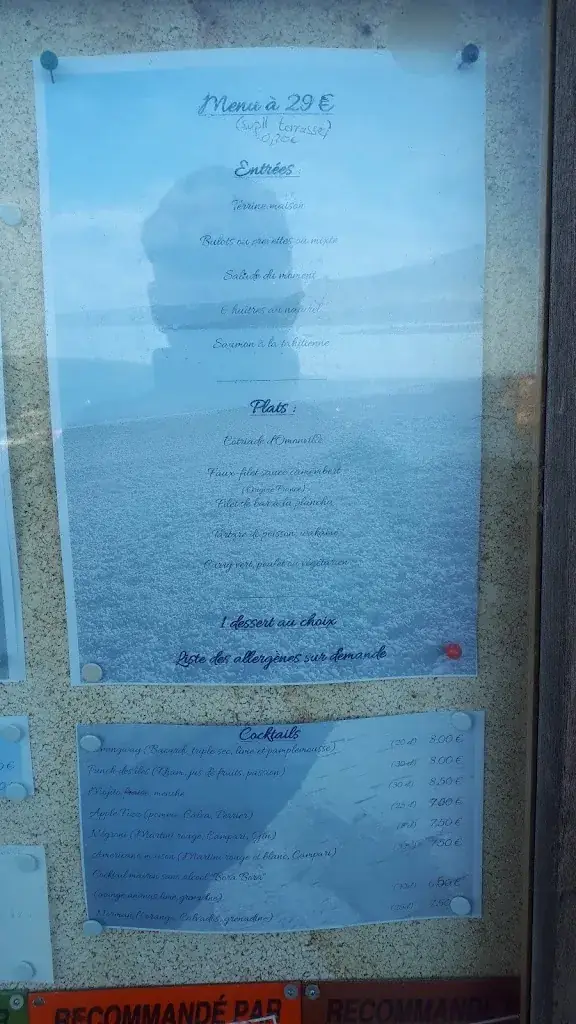 Menu à 29 €
(suppl terrasse)
0,20€
Entrées :
Terrine maison
Bulots ou crevettes ou mixte
Salade du moment
6 huîtres au naturel
Saumon à la tahitienne
Plats :
Cotriade d'Omonville
Faux-filet sauce camembert
(Origine France)
Filet de bar à la plancha
Tartare de poisson, wakame
Curry vert, poulet ou végétarien
1 dessert au choix
Liste des allergènes sur demande
Cocktails
(Bacardi, triple sec, lime et pamplemousse) 8.00 €
Punch des îles (Rhum, jus de fruits, passion) 8.00 €
Mojito menthe 8.50 €
Apple Tizo (pomme, Calva, Perrier) 7.00 €
Négroni (Martini rouge, Campari, Gin) 7.50 €
Américano maison (Martini rouge et blanc, Campari) 7.50 €
Cocktail maison sans alcool "Bora Bora"
Normand (orange, Calvados, grenadine)
RECOMMANDÉ PAR
RECOMMANDÉ